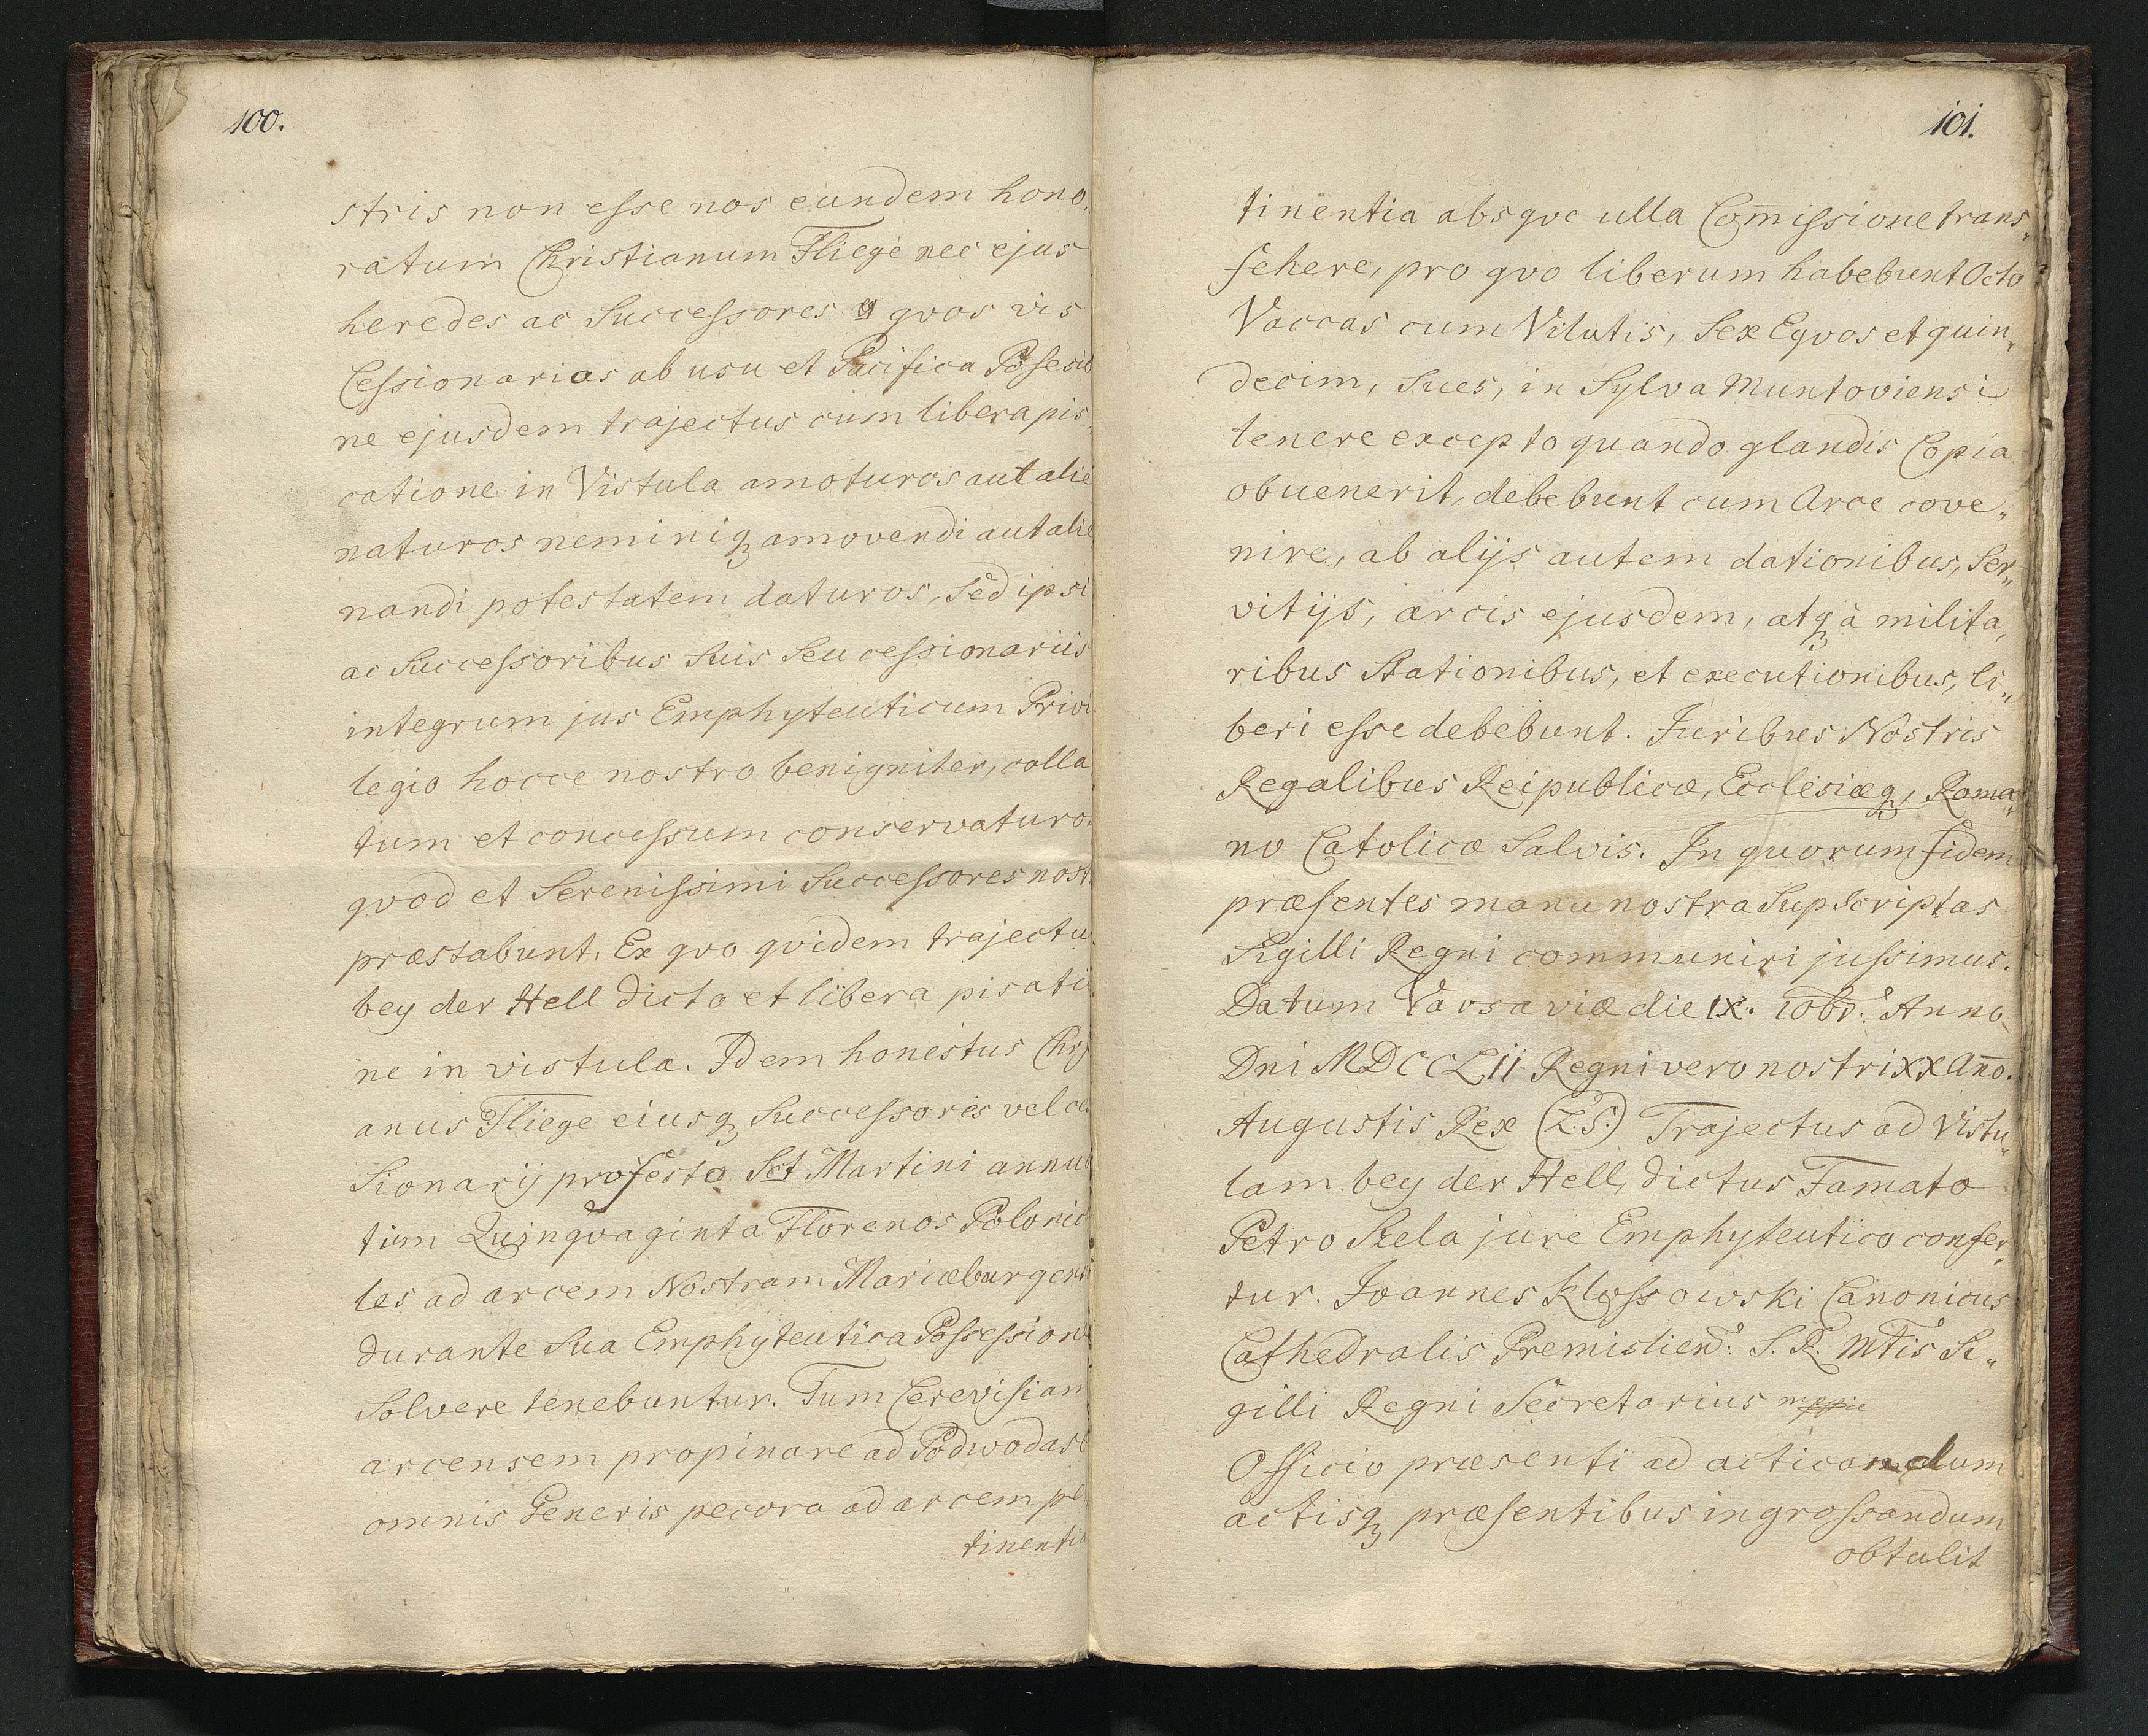 100.
stris non esse nos eundem hono,
ratum Christianum Fliege nec ejus
heredes ac Successores quos vis
Cessionarios ab usu et Pacifica Posesio
ne ejusdem trajectus cum libera pis,
catione in Vistula amoturos aut alie
naturos neminiq amovendi aut alie
nandi potestatem daturos, Sed ipsi
ac Successoribus Suis Seu cessionariis
integrum jus Emphyteuticum Privi
legio hocce nostro benigniter, colla
tum et concessum conservaturos
qvod et Serenissimi Successores nost
præstabunt. Ex qvo qvidem trajectu
bey der Hell dicto et libera pisati
ne in vistula. Idem honestus Chry
anus Fliege eiusq Successoris vel ce
Sionarij pro festo Sct Martini annua
tim Quinqvaginta Florenos Polonica
les ad arcem Nostram Mariæburgens
durante Sua Emphyteutica Possession
Solvere tenebuntur. Tum Cerevisiam
arcensem propinare ad Podwodas
omnis Generis pecora ad arcem pe
tinentia
101.
tinentia absqve ulla Com̄issione trans„
fehere, pro qvo liberum habebunt Octo
Vaccas cum Vilutis, Sex Eqvos et quin„
decim, Sues, in Sylva Muntoviensi
tenere excepto quando glandis Copia
obuenerit, debebunt cum Arce cove„
nire, ab alijs autem dationibus, Ser„
vitijs, arcis ejusdem, atq à milita,
ribus Stationibus, et executionibus, li„
beri esse debebunt. Juribus Nostris
Regalibus Reipublicæ, Ecclesiæq, Roma„
no Catolicæ Salvis. In quorum fidem
præsentes manu nostra Supscriptas
Sigilli Regni communiri jussimus.
Datum Varsaviæ die IX. 10br. Anno
Dni MDCCLII Regni vero nostri XX An̄o.
Augustis Rex (L.S.) Trajectus ad Vistu„
lam bey der Hell, dictus Famato
Petro Szela jure Emphyteutico confer,
tur. Joannes Klossowski Canonicus
Cathedralis Premislien: S. R. Mtis Si„
gilli Regni Secretarius mppie
Officio præsenti ad acticandum
actisq præsentibus ingrossandum
obtulit